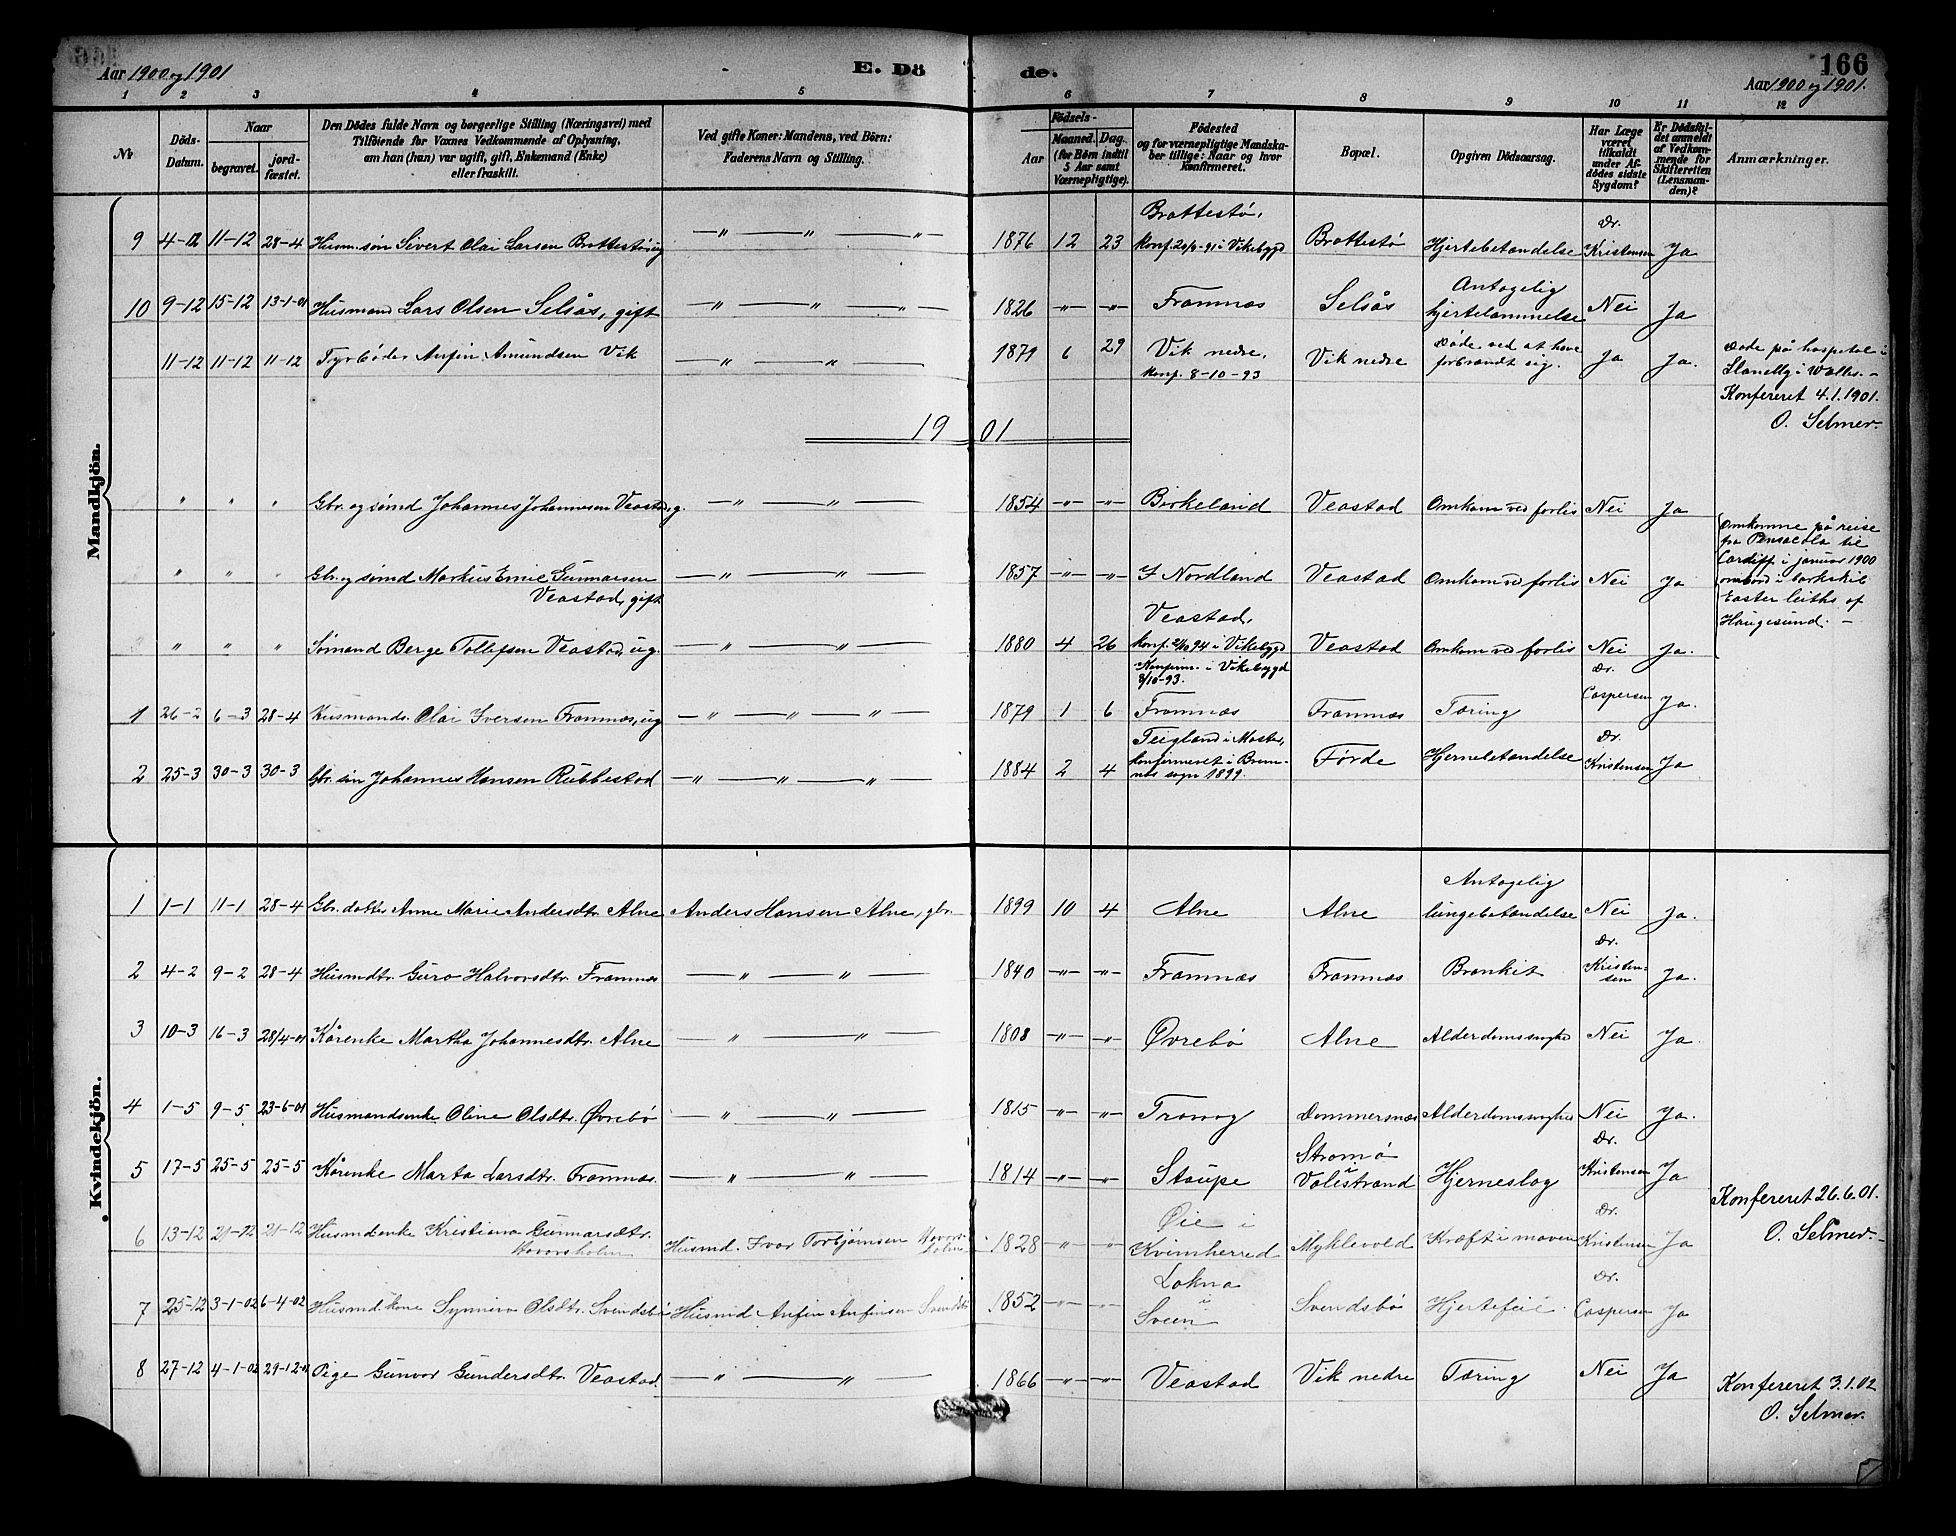 Aar 1900 og 1901
E. Dö
de.
166
Aar 1900 og 1901.
1 2 3 4 5 6 7 8 9 10 11 12
No. Döds-Datum. Naar begravet. jord-fæstet. Den Dödes fulde Navn og borgerlige Stilling (Næringsvei) med Tilföiende for Voxnes Vedkommende af Oplysning, om han (hun) var ugift, gift, Enkemand (Enke) eller fraskilt. Ved gifte Koner: Mandens, ved Börn: Faderens Navn og Stilling. Födsels- Aar Maaned. Dag. (for Börn indtil 5 Aar samt Værnepligtige). Födested og for værnepligtige Mandskaber tillige: Naar og hvor konfirmeret. Bopæl. Opgiven Dödsaarsag. Har Læge været tilkaldt under Afdödes sidste Sygdom? Er Dödsfaldet anmeldt af Vedkommende for Skifteretten (Lensmanden)? Anmærkninger.
Mandkjön.
9 4-12 11-12 28-4 Husm. søn Sivert Olai Larsen Brattestø ug — " — " — " — 1876 12 23 Brattestø, konf. -91 i Vikebygd Brattestø Hjertebetændelse Dr. Kristensen Ja
10 9-12 15-12 13-1-01 Husmand Lars Olsen Selsås, gift — " — " — " — 1826 — " — — " — Framnæs Selsås Antagelig hjertelammelse Nei Ja
11-12 11-12 11-12 Fyrbøder Anfin Amundsen Vik — " — " — 1879 6 29 Vik nedre, konf. 8-10-93 Vik nedre Døde ved at have forbrændt sig. Ja Ja. Døde på hospital i Llanelly i Wales. — Konfereret 4.1.1901. O. Selmer.
1901
" " " Gbr. og sømd Johannes Johannesen Veastad, g. — " — " — 1854 — " — — " — Birkeland Veastad Omkom ved forlis Nei Ja
" " " Gbr. og sømd Markus Emil Gunnarsen Veastad, gift — " — " — 1857 — " — — " — I Nordland Veastad Omkom ved forlis Nei Ja
Omkomne på reise fra Pensacola til Cardiff i januar 1900 ombord i barkskib Easter leiths af Haugesund. —
" " " Sømand Berge Tollefsen Veastad, ug. — " — " — 1880 4 26 Veastad, konf. 2/10 94 i Vikebygd Veastad Omkom ved forlis Nei Ja.
1 26-2 6-3 28-4 Husmands. Olai Iversen Framnæs, ug — " — " — " — 1879 1 6 Konfirm. i Vikebygd 8/10-93. Framnæs Framnæs Tæring Dr. Caspersen Ja.
2 25-3 30-3 30-3 Gbr. søn Johannes Hansen Rubbestad — " — " — " — 1884 2 4 Teigland i Moster, konfirmeret i Bremnes sogn 1899. Førde Hjernebetændelse Dr. Kristensen Ja
Kvindekjön.
1 1-1 11-1 28-4 Gbr. datter Anne Marie Andersdtr. Alne Anders Hansen Alne, gbr. 1899 10 4 Alne Alne Antagelig lungebetændelse Nei Ja.
2 4-2 9-2 28-4 Husmdtr. Guro Halvorsdtr. Framnæs — " — " — 1840 — " — — " — Framnæs Framnæs Bronkit Dr. Kristensen Ja.
3 10-3 16-3 28/4-01 Kårenke Martha Johannesdtr. Alne — " — " — 1808 — " — — " — Øvrebø Alne Alderdomssvaghed Nei Ja
4 1-5 9-5 23-6-01 Husmandsenke Oline Olsdtr. Øvrebø — " — " — 1815 — " — — " — Dommersnæs Alderdomssvaghed Nei Ja.
5 17-5 25-5 25-5 Kårenke Marta Larsdtr. Framnæs. — " — " — 1814 — " — — " — Støupe Strømø i Valestrand Hjerneslag Dr. Kristensen Ja
Konfereret 26.6.01. O. Selmer. —
6 13-12 21-12 21-12 Husmdenke Kristiana Gunnarsdtr. Hovorsholm Husmd. Ivar Torbjørnsen Hovorsholm 1828 — " — — " — Øie i Kvinherred Myklevold Kræft i maven Dr. Kristensen Ja
7 25-12 3-1-02 6-4-02 Husmd.kone Synniva Olsdtr. Svendsbø Husmd Anfin Anfinsen Svendsbø 1852 — " — — " — Løkna i Sveen Svendsbø Hjertefeil. Dr. Caspersen Ja
8 27-12 4-1-02 29-12-01 Pige Gunvor Gundersdtr. Veastad. — " — " — 1866 — " — — " — Veastad Vik nedre Tæring Nei Ja
Konfereret 3.1.02 O. Selmer.